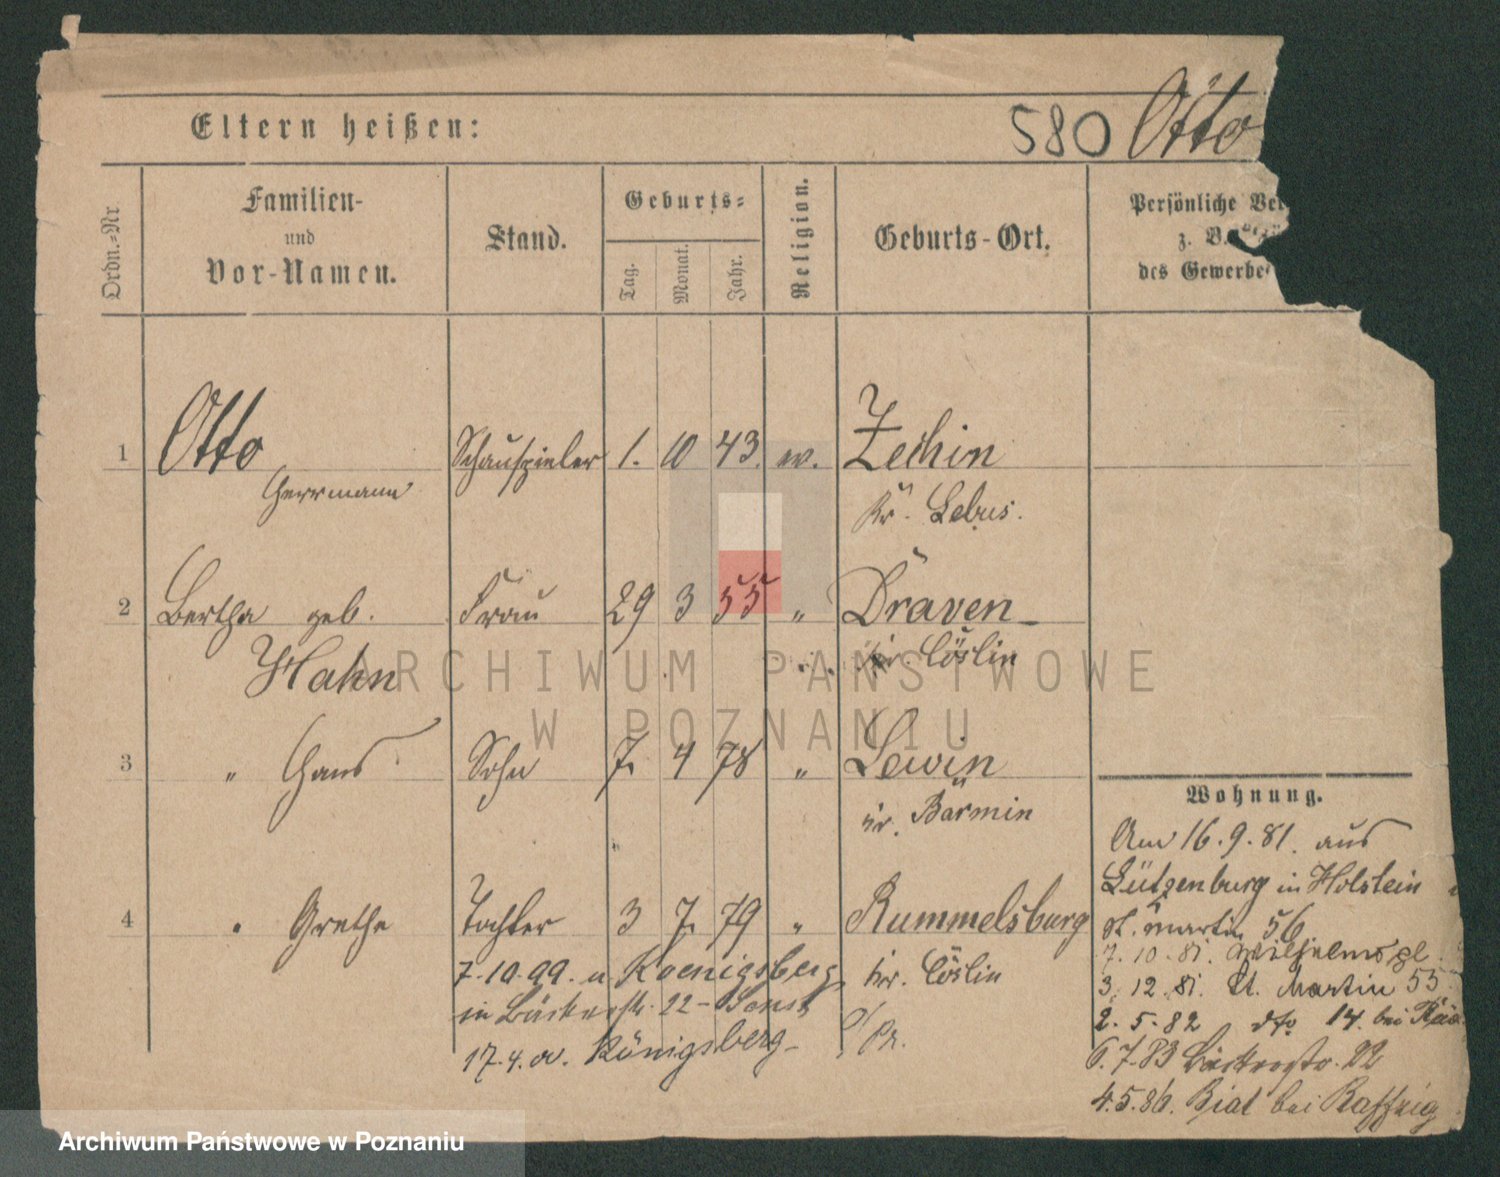 Eltern heißen:
580 Otto
Ordn.-Nr
Familien-
und
Vor-Namen.
Stand.
Geburts-
Tag.
Monat.
Jahr.
Religion.
Geburts-Ort.
Persönliche
z. B.
des Gewerbe
1 Otto Schauspieler 1. 10 43. ev. Zechin
Herrmann Kr. Lebus.
2 Bertha geb. Frau 29 3 55 " Draven
Hahn Kr. Cöslin
3 " Hans Sohn 7. 4 78 " Lewin
Kr. Barmin
4 " Grethe Tochter 3 7. 79 " Rummelsburg
Kr. Cöslin
7.10.99. n. Koenigsberg
in Bäckerstr. 22 -
17.4. Königsberg
Wohnung.
Am 16.9.81. aus
Lütgenburg in Holstein
St. Martin 56
7.10.81. Wilhelmspl.
3.12.81. St. Martin 55
2.5.82 dto 14. bei
6.7.83 Bäckerstr. 22
4.5.86. bei
ARCHIWUM PAŃSTWOWE
W POZNANIU
Archiwum Państwowe w Poznaniu